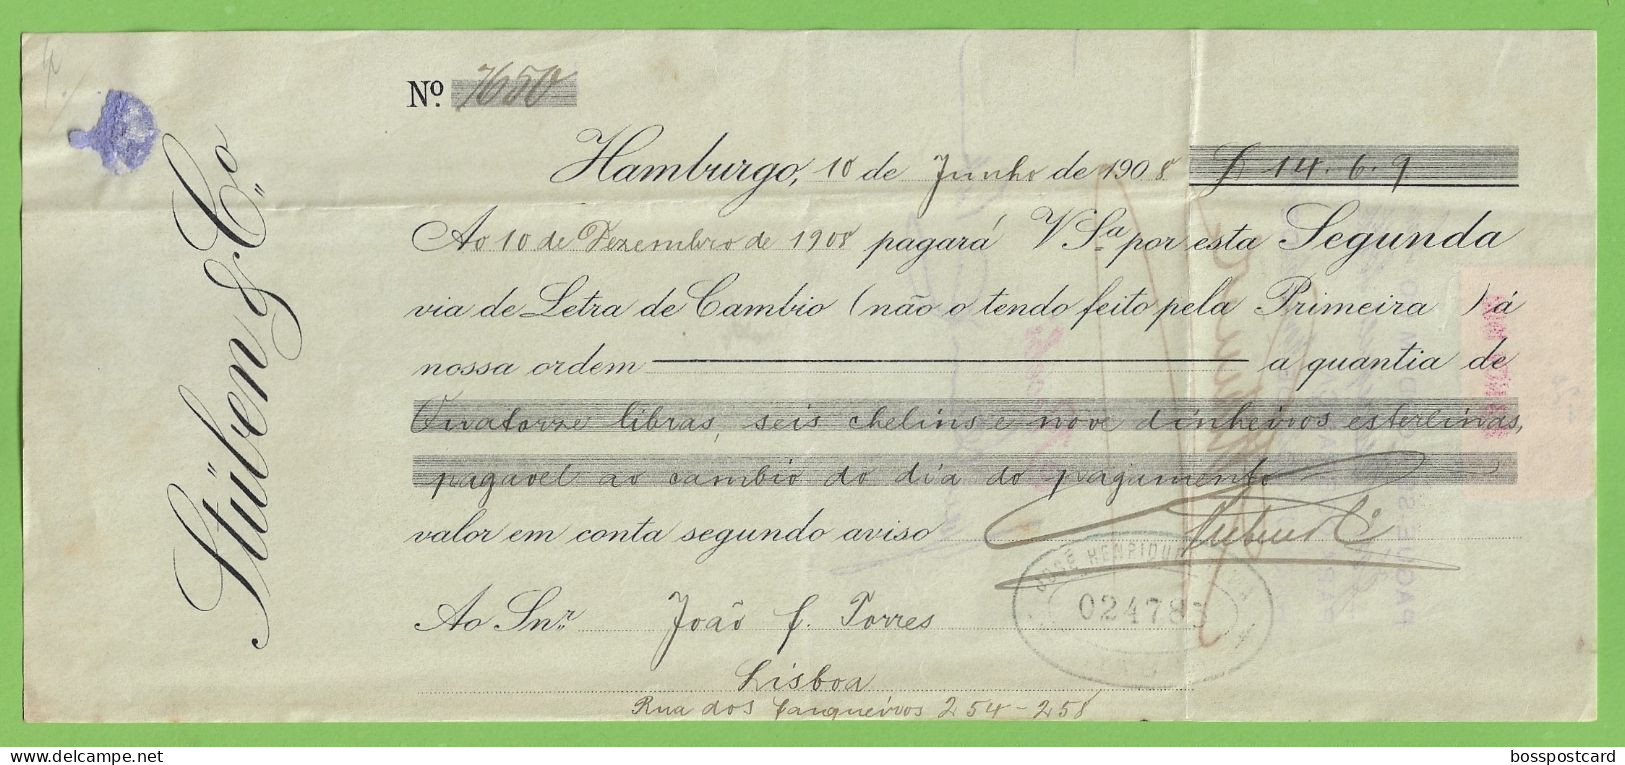 Stüben & Cº
Nº 7650
Hamburgo, 10 de Junho de 1908 £ 14.6.9
Ao 10 de Dezembro de 1908 pagará V Sª por esta Segunda
via de Letra de Cambio (não o tendo feito pela Primeira) á
nossa ordem a quantia de
Quatorze libras, seis chelins e nove dinheiros esterlinas,
pagavel ao cambio do dia do pagamento
valor em conta segundo aviso
JOSÉ HENRIQUE
024783
Ao Snr. João f. Torres
Lisboa
Rua dos Fanqueiros 254-258
bosspostcard